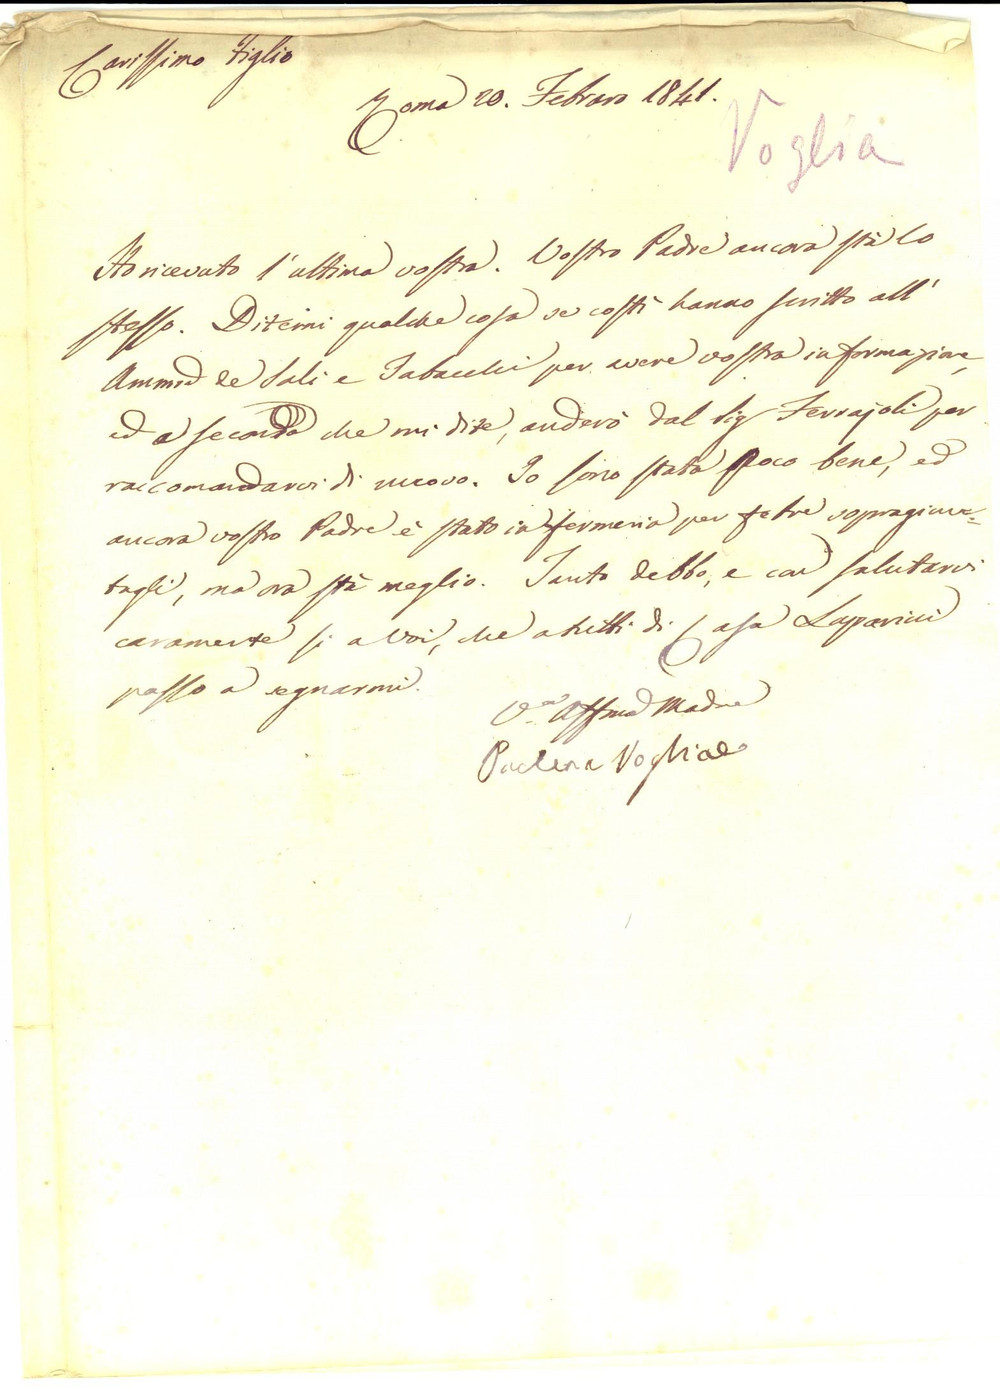 Carissimo Figlio
Roma 20. Febraro 1841.
Voglia
Ho ricevuto l'ultima vostra. Vostro Padre ancora stà lo
stesso. Ditemi qualche cosa se costì hanno scritto all'
Ammne de Sali e Tabacchi per avere vostra informazione,
ed a seconda che mi dite, anderò dal Sig Ferrajoli per
raccomandarvi di nuovo. Io sono stata poco bene, ed
ancora vostro Padre è stato infermeria per febre sopragiun=
tagli, ma ora stà meglio. Tanto debbo, e con salutarvi
caramente si a Voi, che a tutti di Casa
passo a segnarmi.
Vra Affma Madre
Voglia